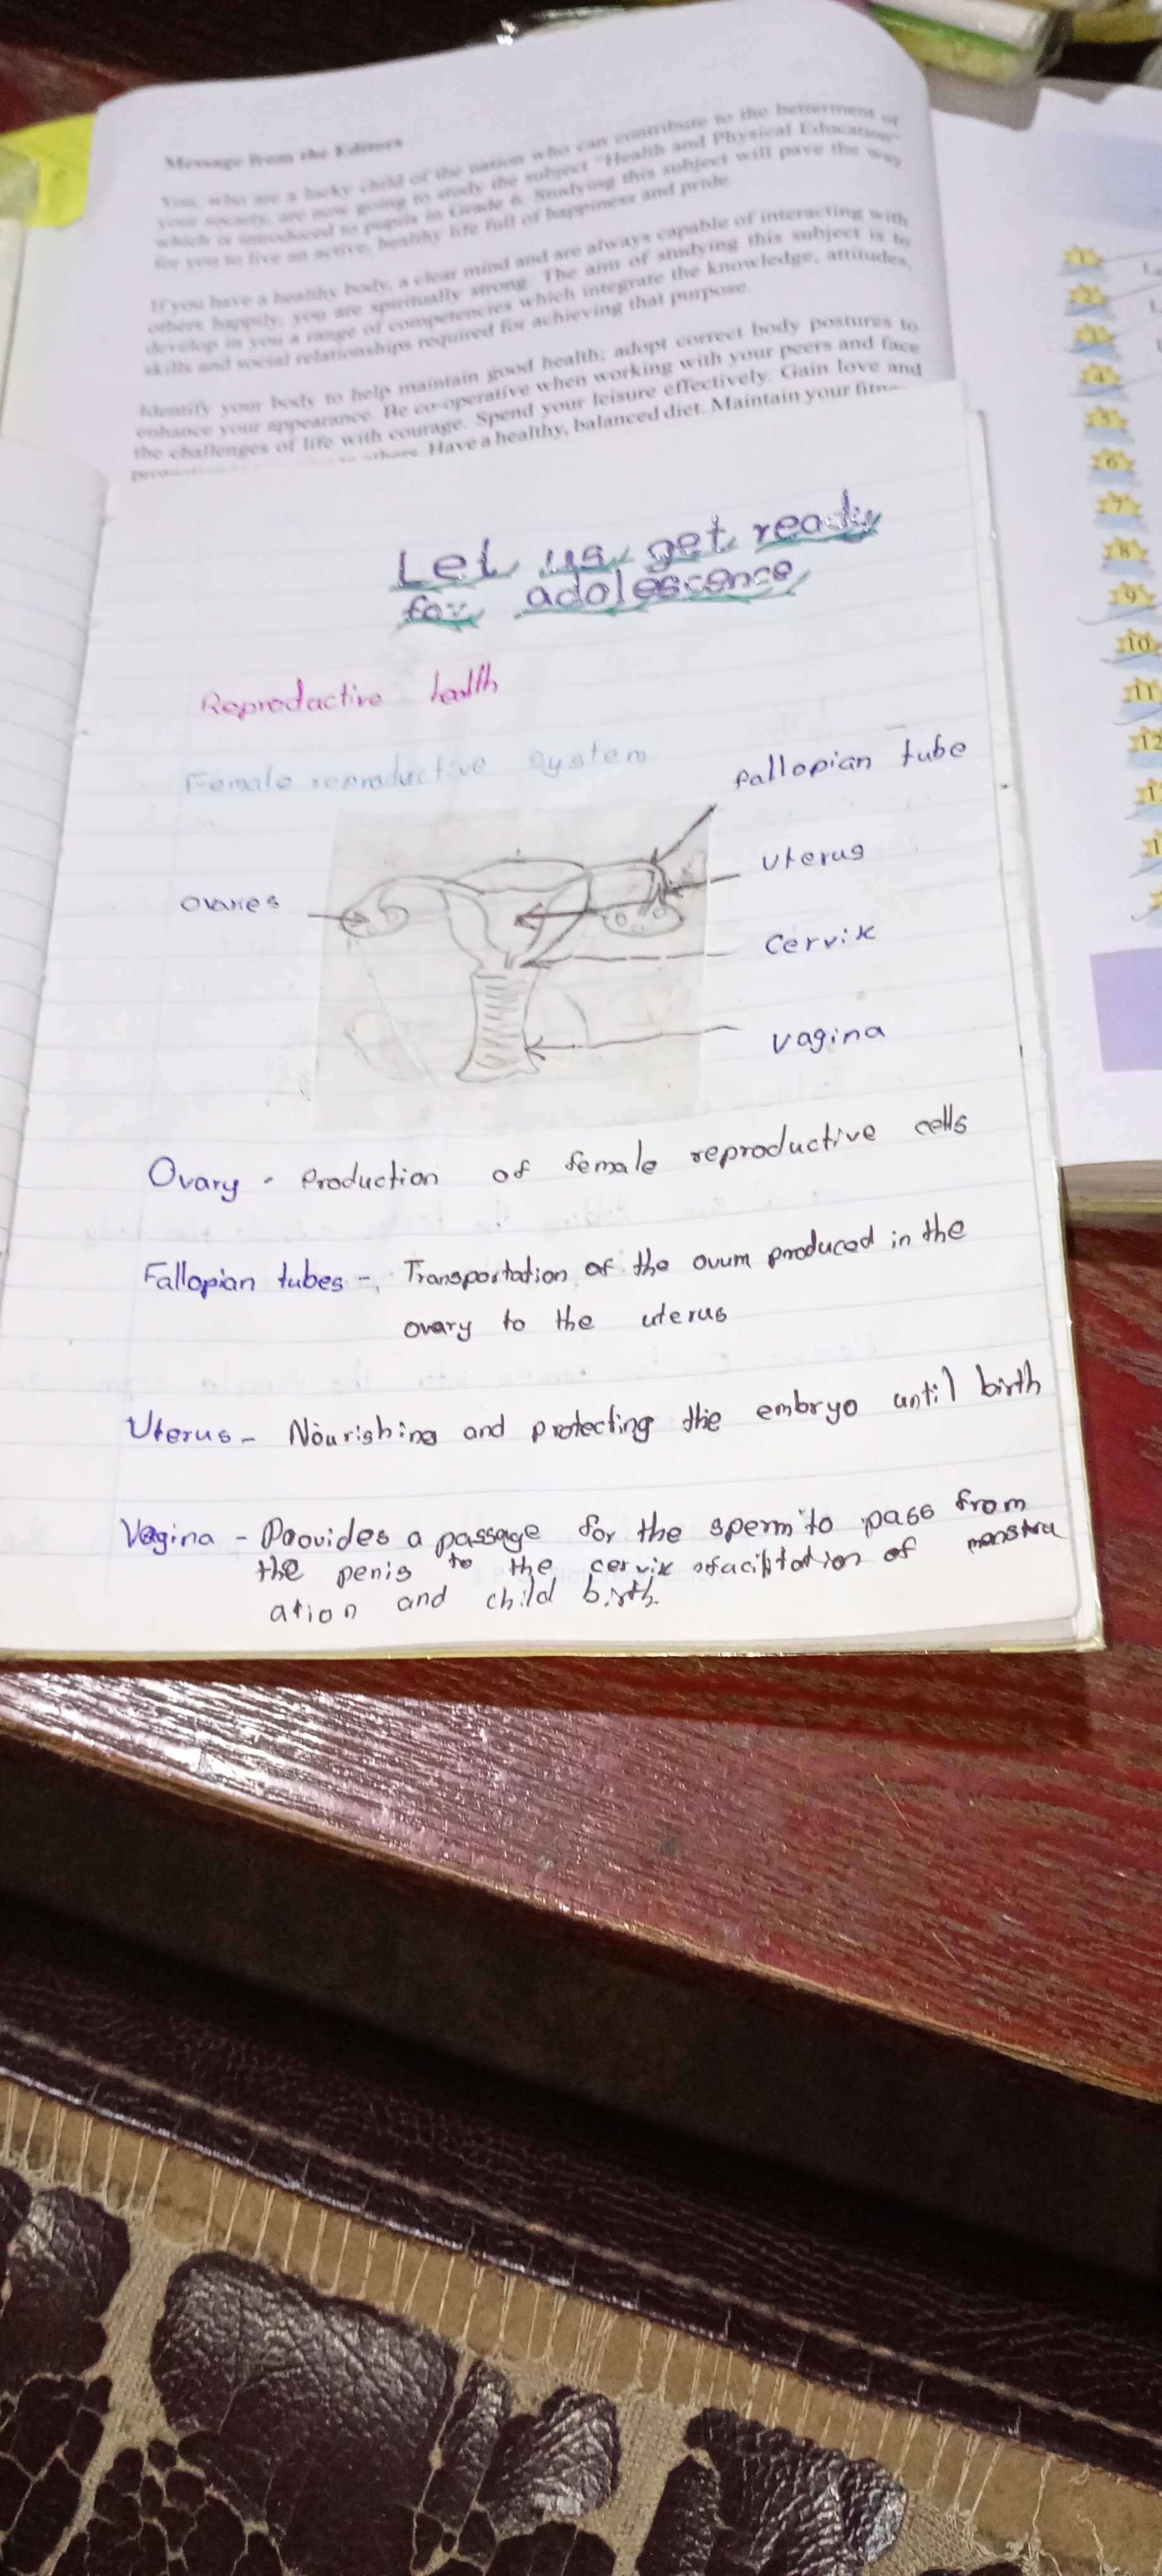 Message from the Editors
You, who are a lucky child of the nation who can contribute to the betterment of
your society, are now going to study the subject "Health and Physical Education"
which is introduced to pupils in Grade 6. Studying this subject will pave the way
for you to live an active, healthy life full of happiness and pride.
If you have a healthy body, a clear mind and are always capable of interacting with
others happily, you are spiritually strong. The aim of studying this subject is to
develop in you a range of competencies which integrate the knowledge, attitudes,
skills and social relationships required for achieving that purpose.
Identify your body to help maintain good health; adopt correct body postures to
enhance your appearance. Be co-operative when working with your peers and face
the challenges of life with courage. Spend your leisure effectively. Gain love and
others. Have a healthy, balanced diet. Maintain your
Let us get ready
for adolescence
Reproductive health
Female reproductive system
fallopian tube
uterus
ovaries
Cervix
vagina
Ovary - Production of female reproductive cells
Fallopian tubes - Transportation of the ovum produced in the
ovary to the uterus
Uterus - Nourishing and protecting the embryo until birth
Vagina - Provides a passage for the sperm to pass from
the penis to the cervix facilitation of menstru
ation and child birth.
1
2
3
4
5
6
7
8
9
10
11
12